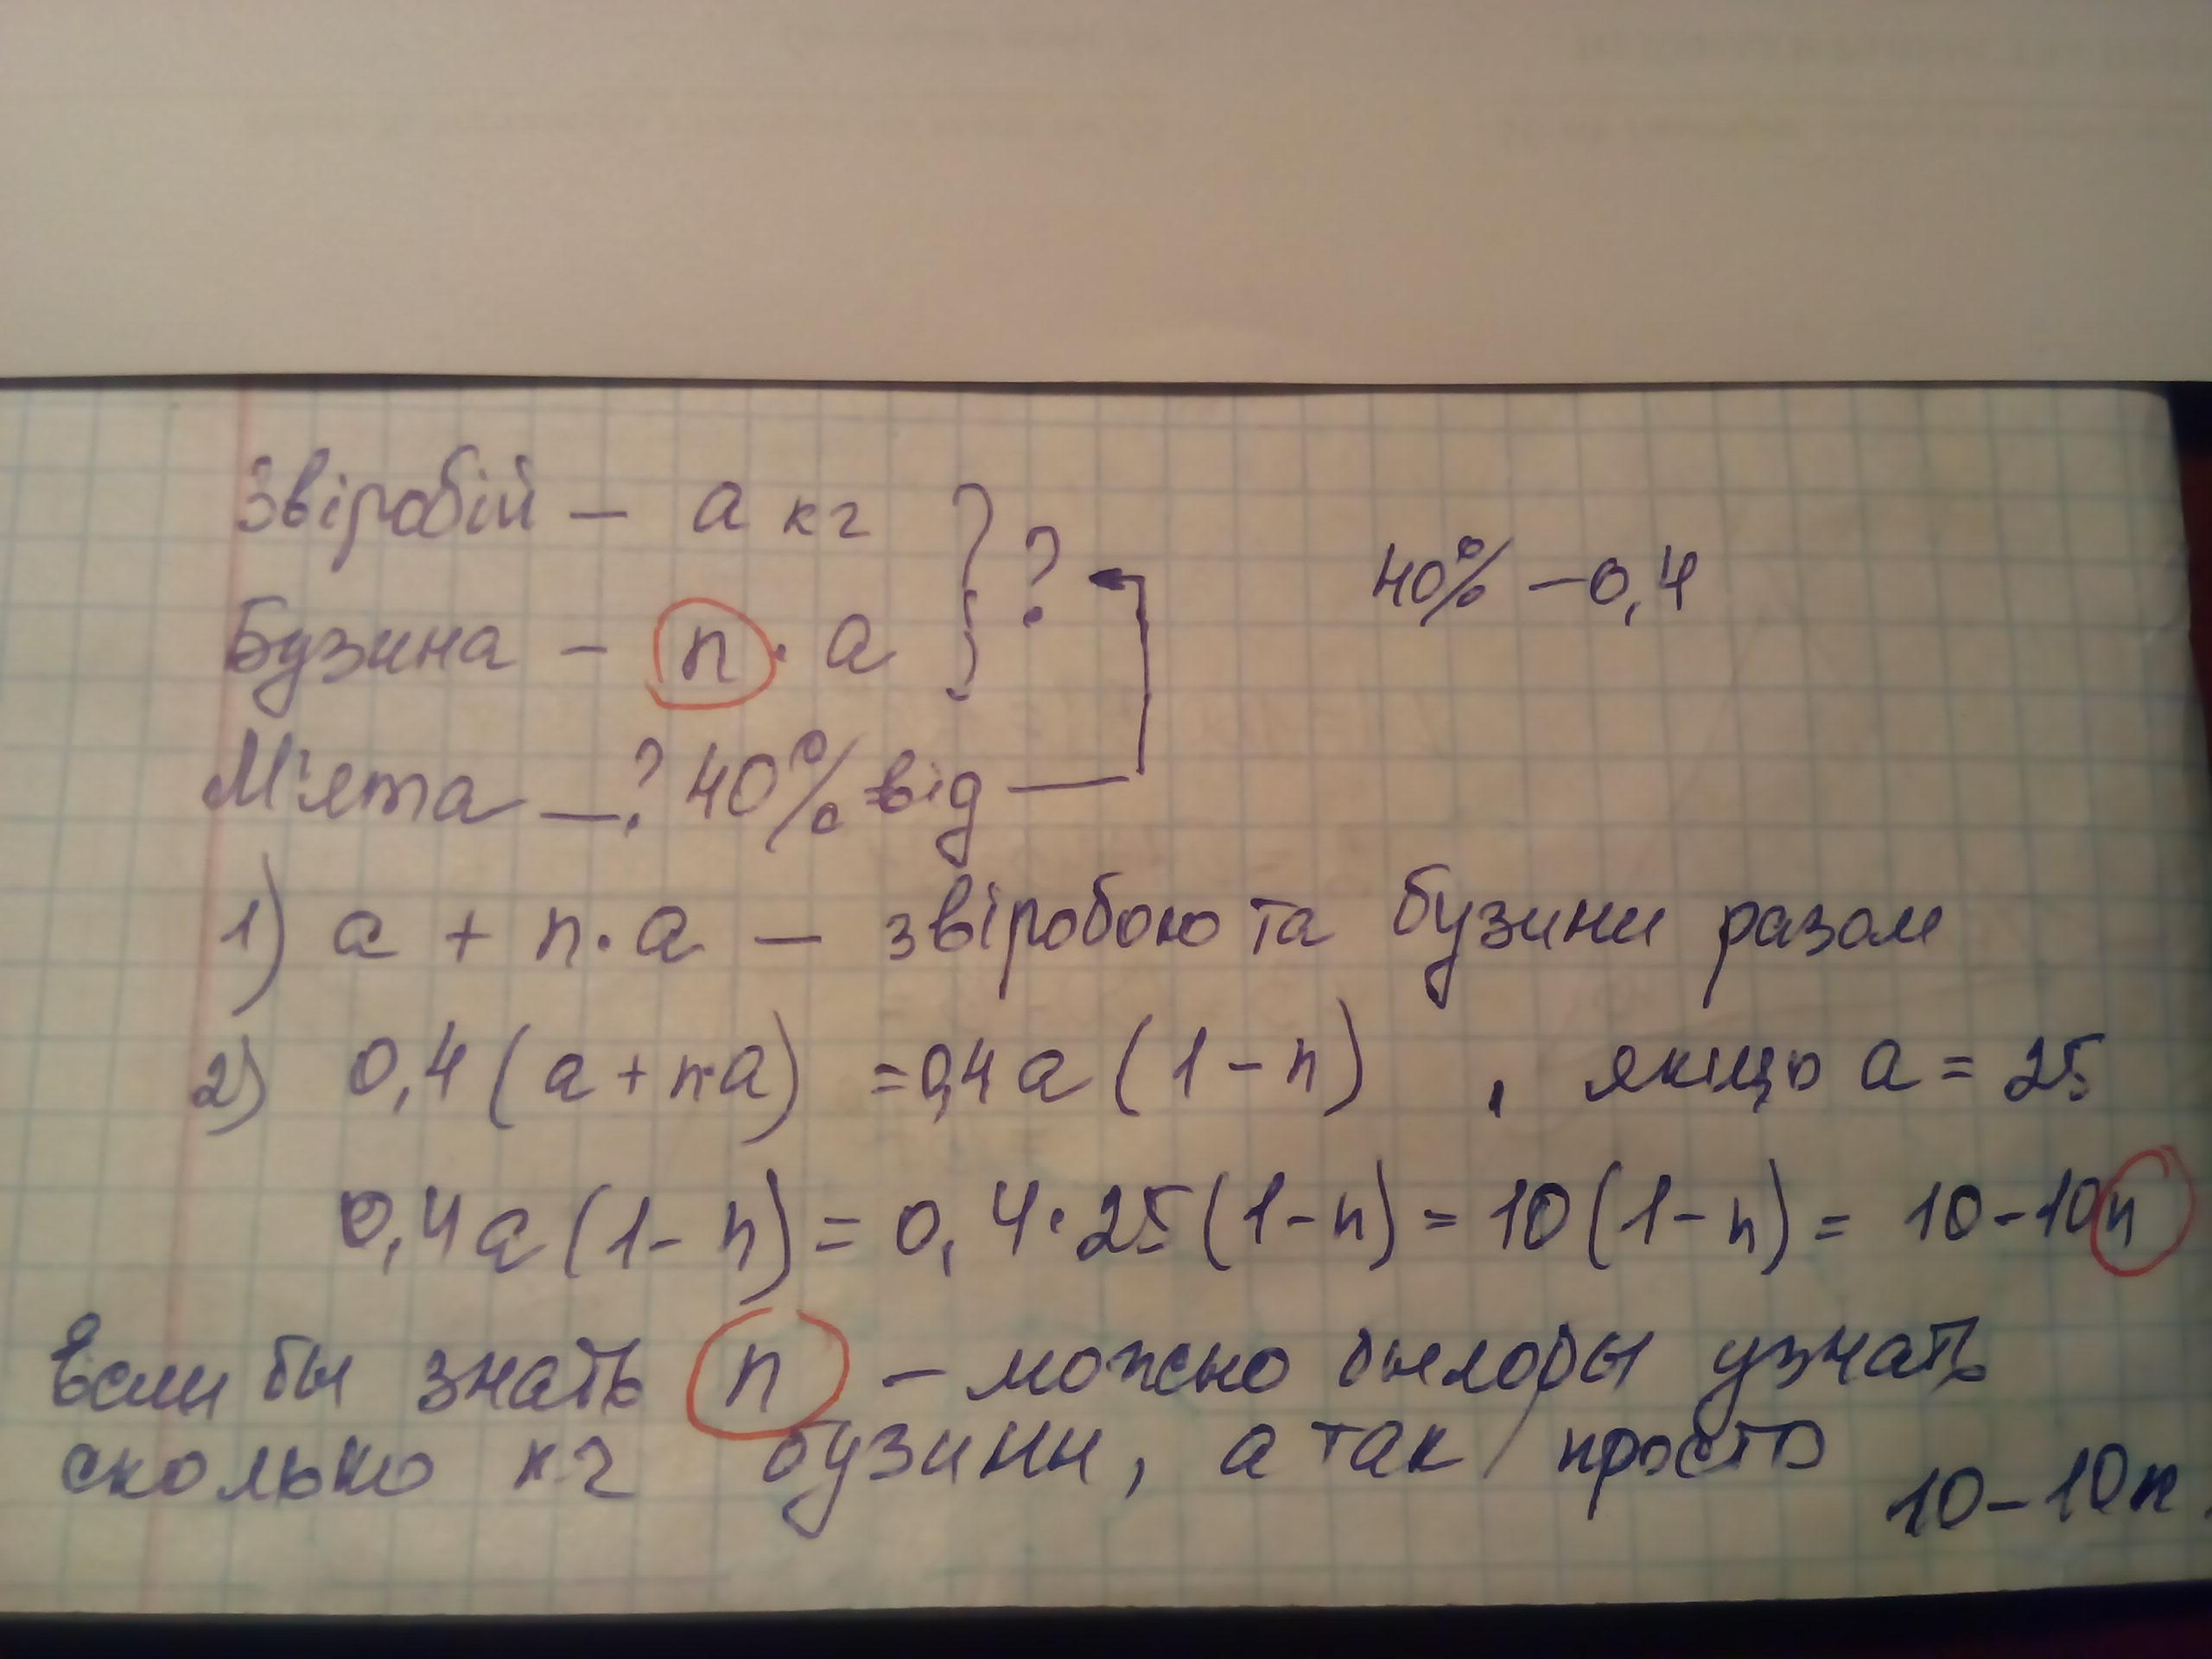 Звіробій – a кг } ?
40% – 0,4
Бузина – n · a
М'ята – ? 40% від
1) a + n · a – звіробою та бузини разом
2) 0,4 ( a + n·a ) = 0,4 a ( 1 – n ) , якщо a = 25
0,4 a ( 1 – n ) = 0,4 · 25 ( 1 – n ) = 10 ( 1 – n ) = 10 – 10n
Если бы знать n – можно былобы узнать
сколько кг бузини, а так просто 10 – 10n.